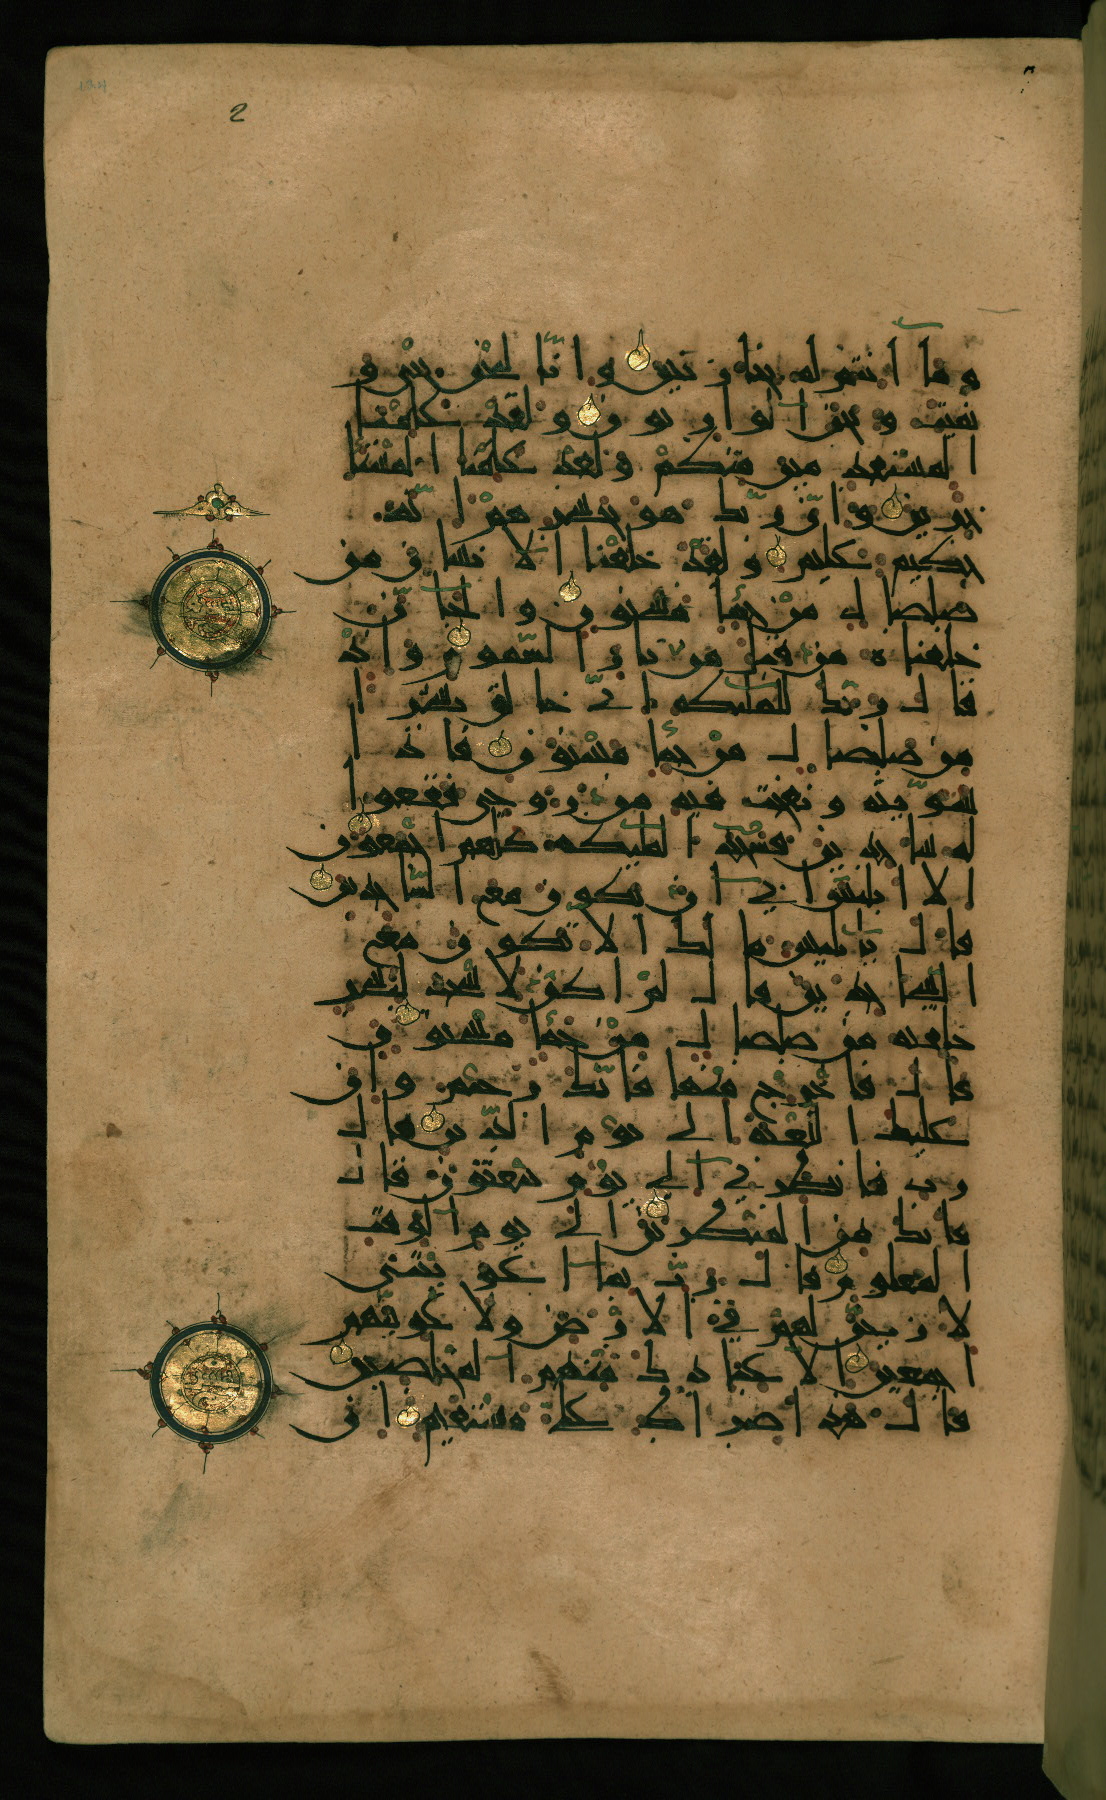 2
وما انتم له بخازنين وانا لنحن نحي و
نميت ونحن الوارثون ولقد علمنا
المستقدمين منكم ولقد علمنا المستا
خرين وان ربك هو يحشرهم انه
حكيم عليم ولقد خلقنا الانسان من
صلصال من حما مسنون والجان
خلقناه من قبل من نار السموم واذ
قال ربك للمليكة اني خالق بشرا
من صلصال من حما مسنون فاذا
سويته ونفخت فيه من روحي فقعوا
له ساجدين فسجد المليكة كلهم اجمعون
الا ابليس ابى ان يكون مع الساجدين
قال يابليس ما لك الا تكون مع
الساجدين قال لم اكن لاسجد لبشر
خلقته من صلصال من حما مسنون
قال فاخرج منها فانك رجيم وان
عليك اللعنة الى يوم الدين قال
رب فانظرني الى يوم يبعثون قال
فانك من المنظرين الى يوم الوقت
المعلوم قال رب بما اغويتني
لازينن لهم في الارض ولاغوينهم
اجمعين الا عبادك منهم المخلصين
قال هذا صراط علي مستقيم ان